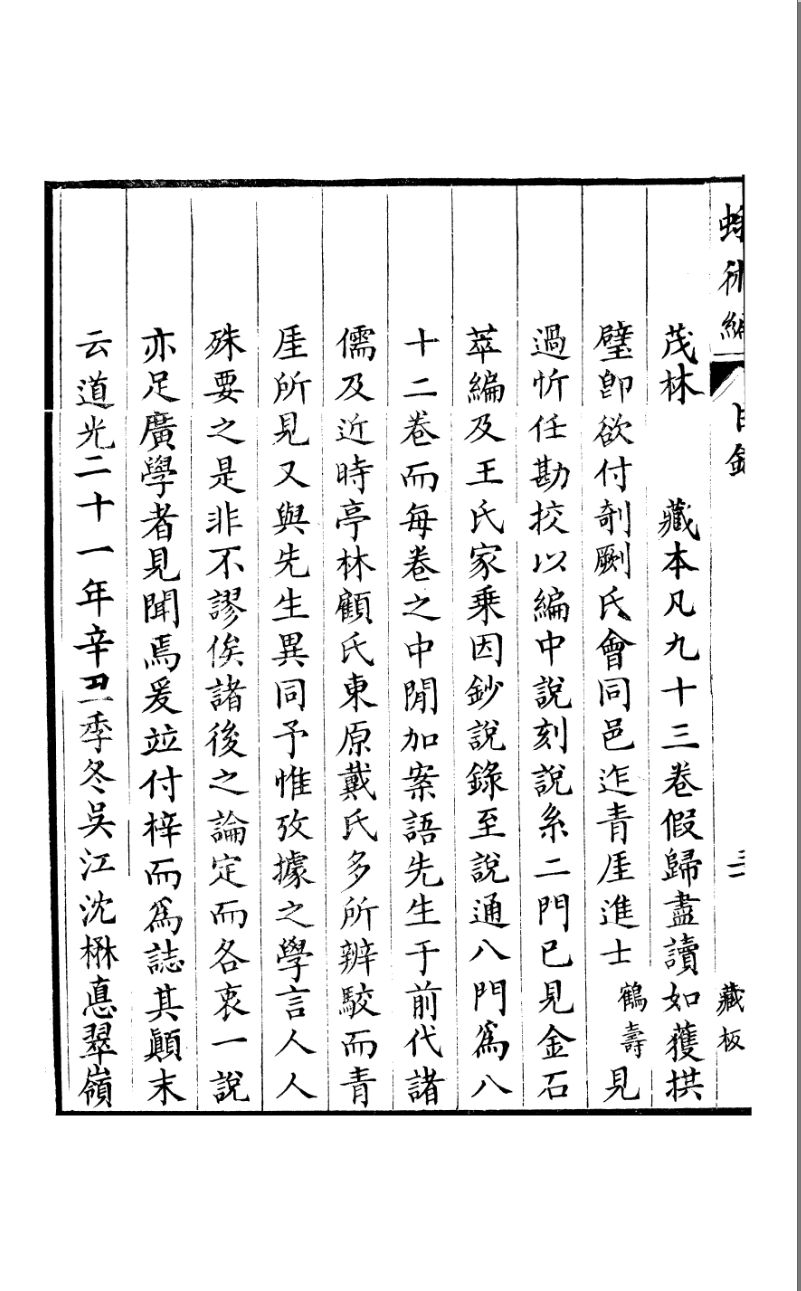 蛾術編 目錄 三 藏板
茂林 藏本凡九十三卷假歸盡讀如獲拱
璧卽欲付剞劂氏會同邑迮青厓進士鶴壽見
過忻任勘挍以編中說刻說系二門已見金石
萃編及王氏家乘因鈔說錄至說通八門爲八
十二卷而每卷之中閒加案語先生于前代諸
儒及近時亭林顧氏東原戴氏多所辨駮而青
厓所見又與先生異同予惟攷據之學言人人
殊要之是非不謬俟諸後之論定而各衷一說
亦足廣學者見聞焉爰竝付梓而爲誌其顚末
云道光二十一年辛丑季冬吳江沈楙悳翠嶺